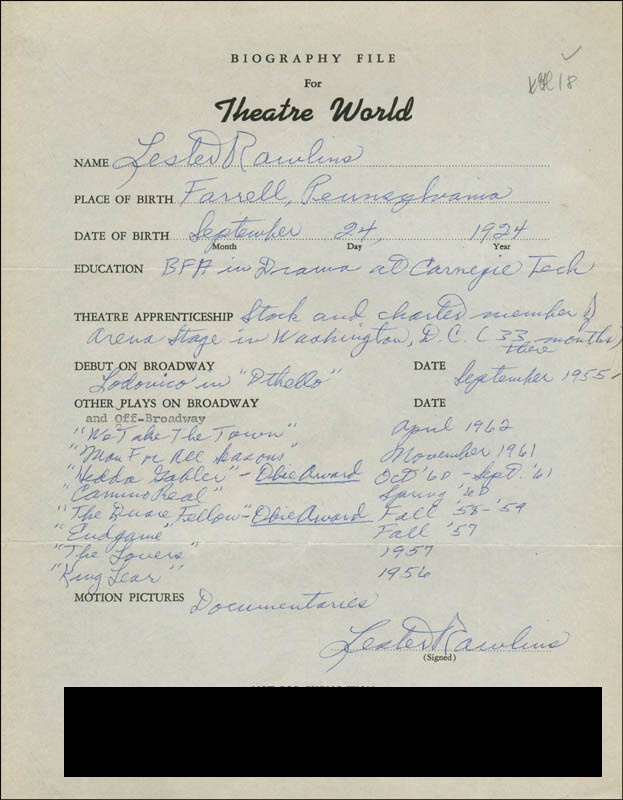 BIOGRAPHY FILE
For
Theatre World
NAME Lester Rawlins
PLACE OF BIRTH Farrell, Pennsylvania
DATE OF BIRTH September 24, 1924
Month Day Year
EDUCATION BFA in Drama at Carnegie Tech
THEATRE APPRENTICESHIP Stock and charter member of
Arena Stage in Washington, D.C. (33 months)
there
DEBUT ON BROADWAY DATE
Lodovico in "Othello" September 1955
OTHER PLAYS ON BROADWAY DATE
and Off-Broadway
"We Take The Town" April 1962
"Man For All Seasons" November 1961
"Hedda Gabler" - Obie Award Oct '60 - Sept. '61
"Camino Real" Spring '60
"The Quare Fellow" - Obie Award Fall '58-'59
"Endgame" Fall '57
"The Lovers" 1957
"King Lear" 1956
MOTION PICTURES Documentaries
Lester Rawlins
(Signed)